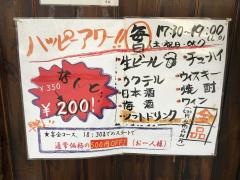 ハッピーアワー!!
毎日 17:30~19:00
土・祝日・OK
¥350
なんと
¥200!
生ビール
・チューハイ
・カクテル
・ウイスキー
・日本酒
・焼酎
・梅酒
・ワイン
・ソフトドリンク
全品
★宴会コース、18:30までのスタートで
通常価格の200円OFF!(お一人様)